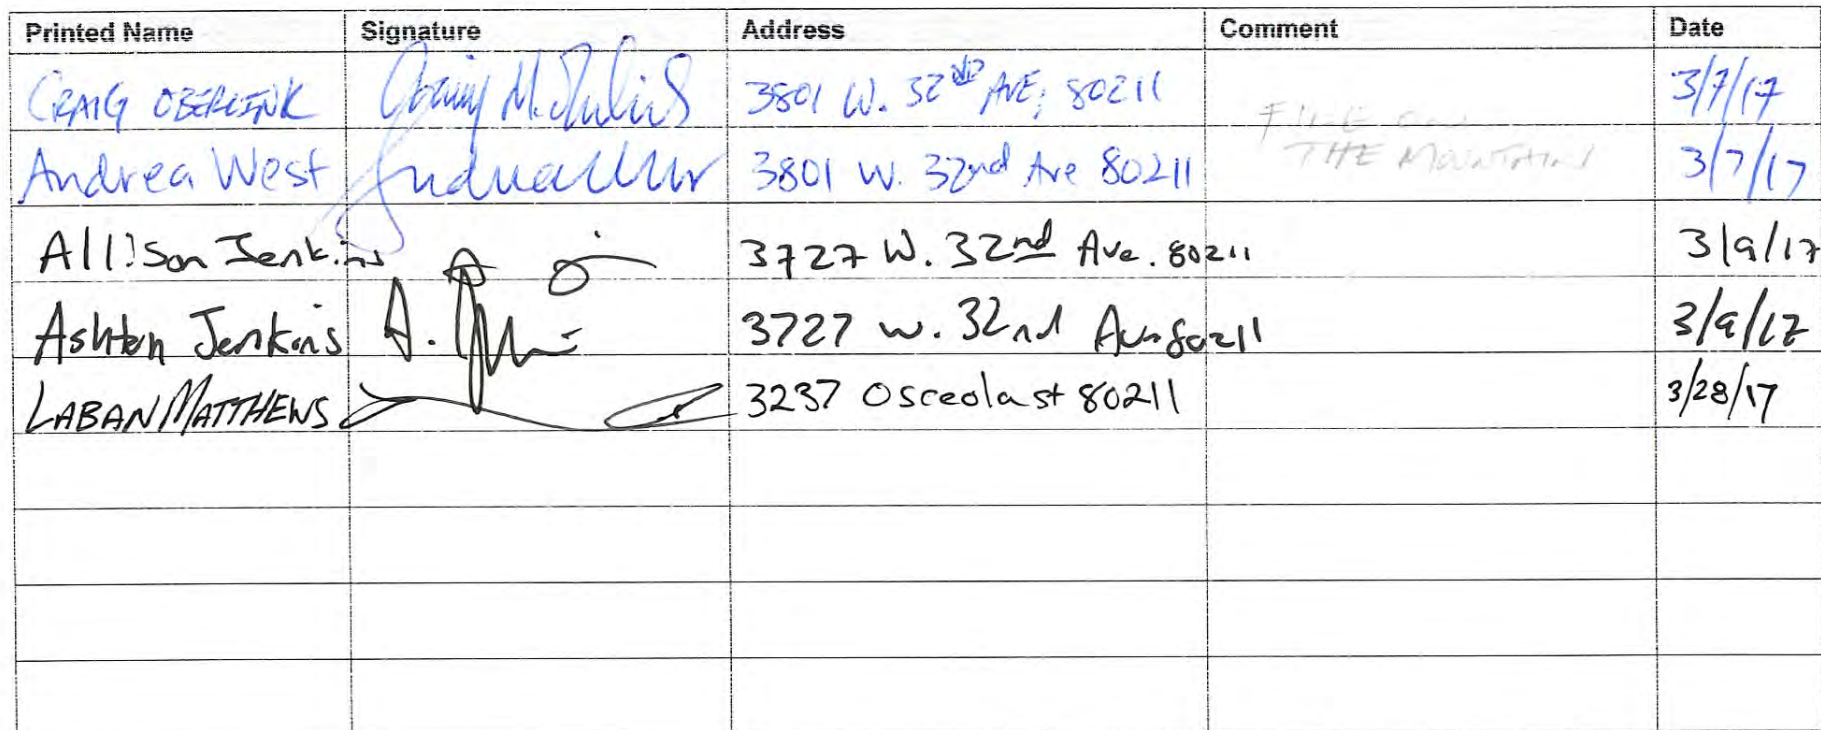 Printed Name Signature Address Comment Date
CRAIG OBERLINK 3801 W. 32ND AVE, 80211 3/7/17
FIRE ON
THE MOUNTAIN
Andrea West 3801 W. 32nd Ave 80211 3/7/17
Allison Jenkins 3727 W. 32nd Ave. 80211 3/9/17
Ashten Jenkins A. 3727 W. 32nd Ave 80211 3/9/17
LABAN MATTHEWS 3237 Osceola st 80211 3/28/17